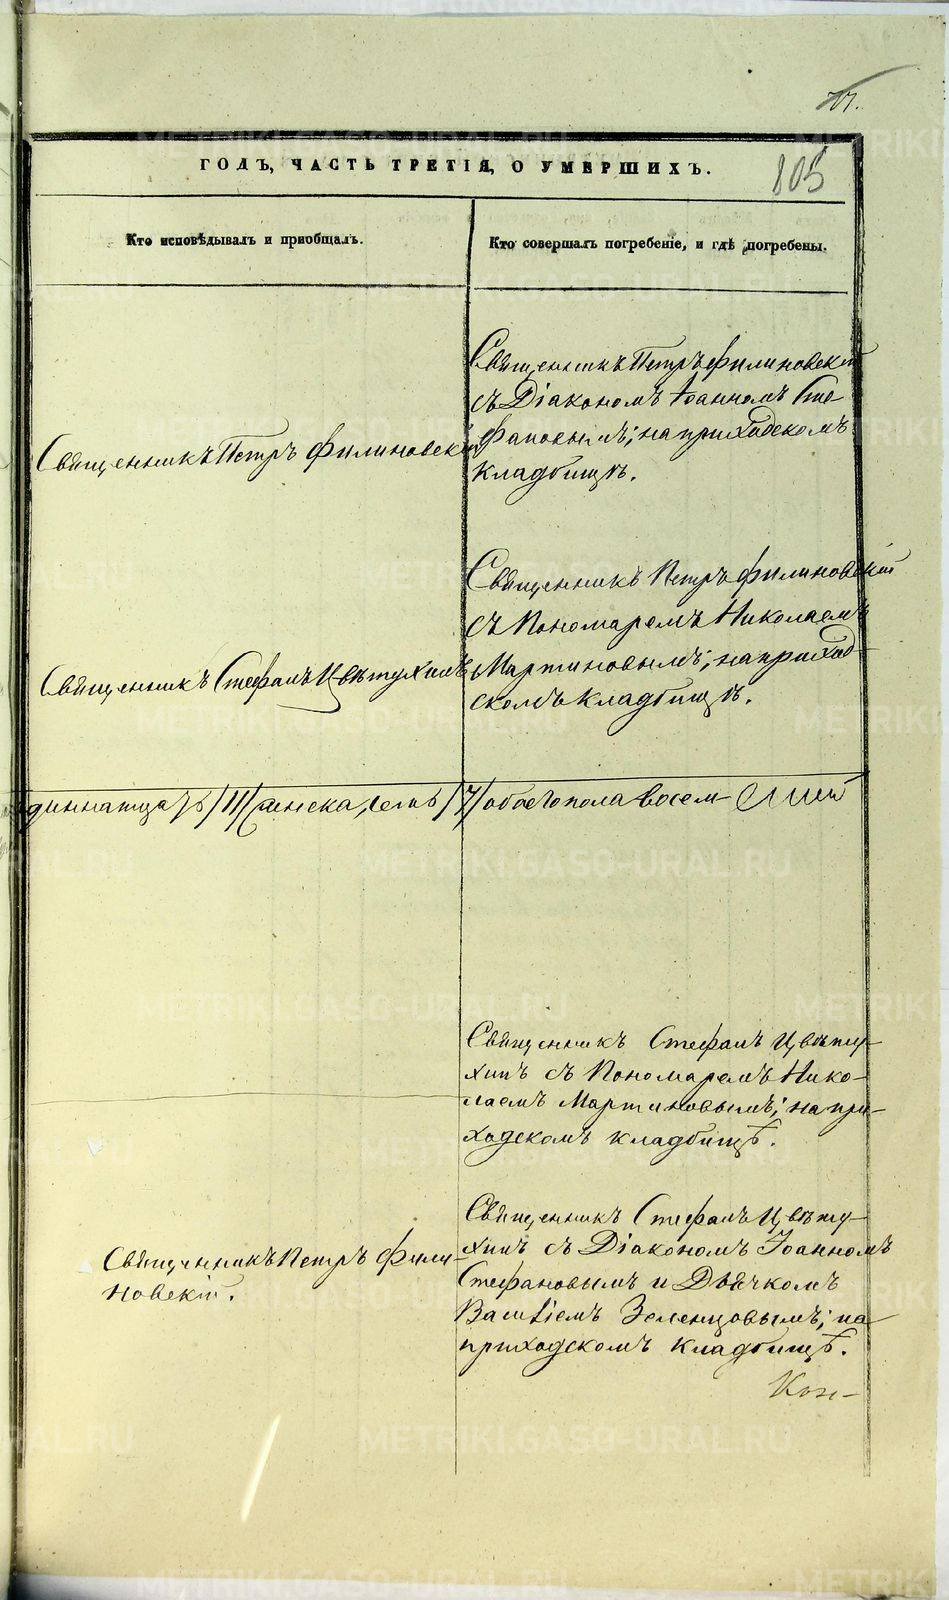 805
ГОДЪ, ЧАСТЬ ТРЕТІЯ, О УМЕРШИХЪ.
Кто исповѣдывалъ и пріобщалъ.
Кто совершалъ погребеніе, и гдѣ погребены.
Священникъ Петръ Филиновскій
Священникъ Петръ Филиновскій
съ Діакономъ Іоанномъ Сте-
фановымъ; на приходскомъ
кладбищѣ.
Священникъ Стефанъ Цвѣтухинъ
Священникъ Петръ Филиновскій
съ Пономаремъ Николаемъ
Мартиновымъ; на приход-
скомъ кладбищѣ.
динна​тцать /11/ женска, семь /7/ обоего пола восем-
Священникъ Стефанъ Цвѣту-
хинъ съ Пономаремъ Нико-
лаемъ Мартиновымъ; на при-
ходскомъ кладбищѣ.
Священникъ Петръ Фили-
новскій.
Священникъ Стефанъ Цвѣту-
хинъ съ Діакономъ Іоанномъ
Стефановымъ и Дьячкомъ
Василіемъ Зеленцовымъ; на
приходскомъ кладбищѣ.
METRIKI.GASO-URAL.RU